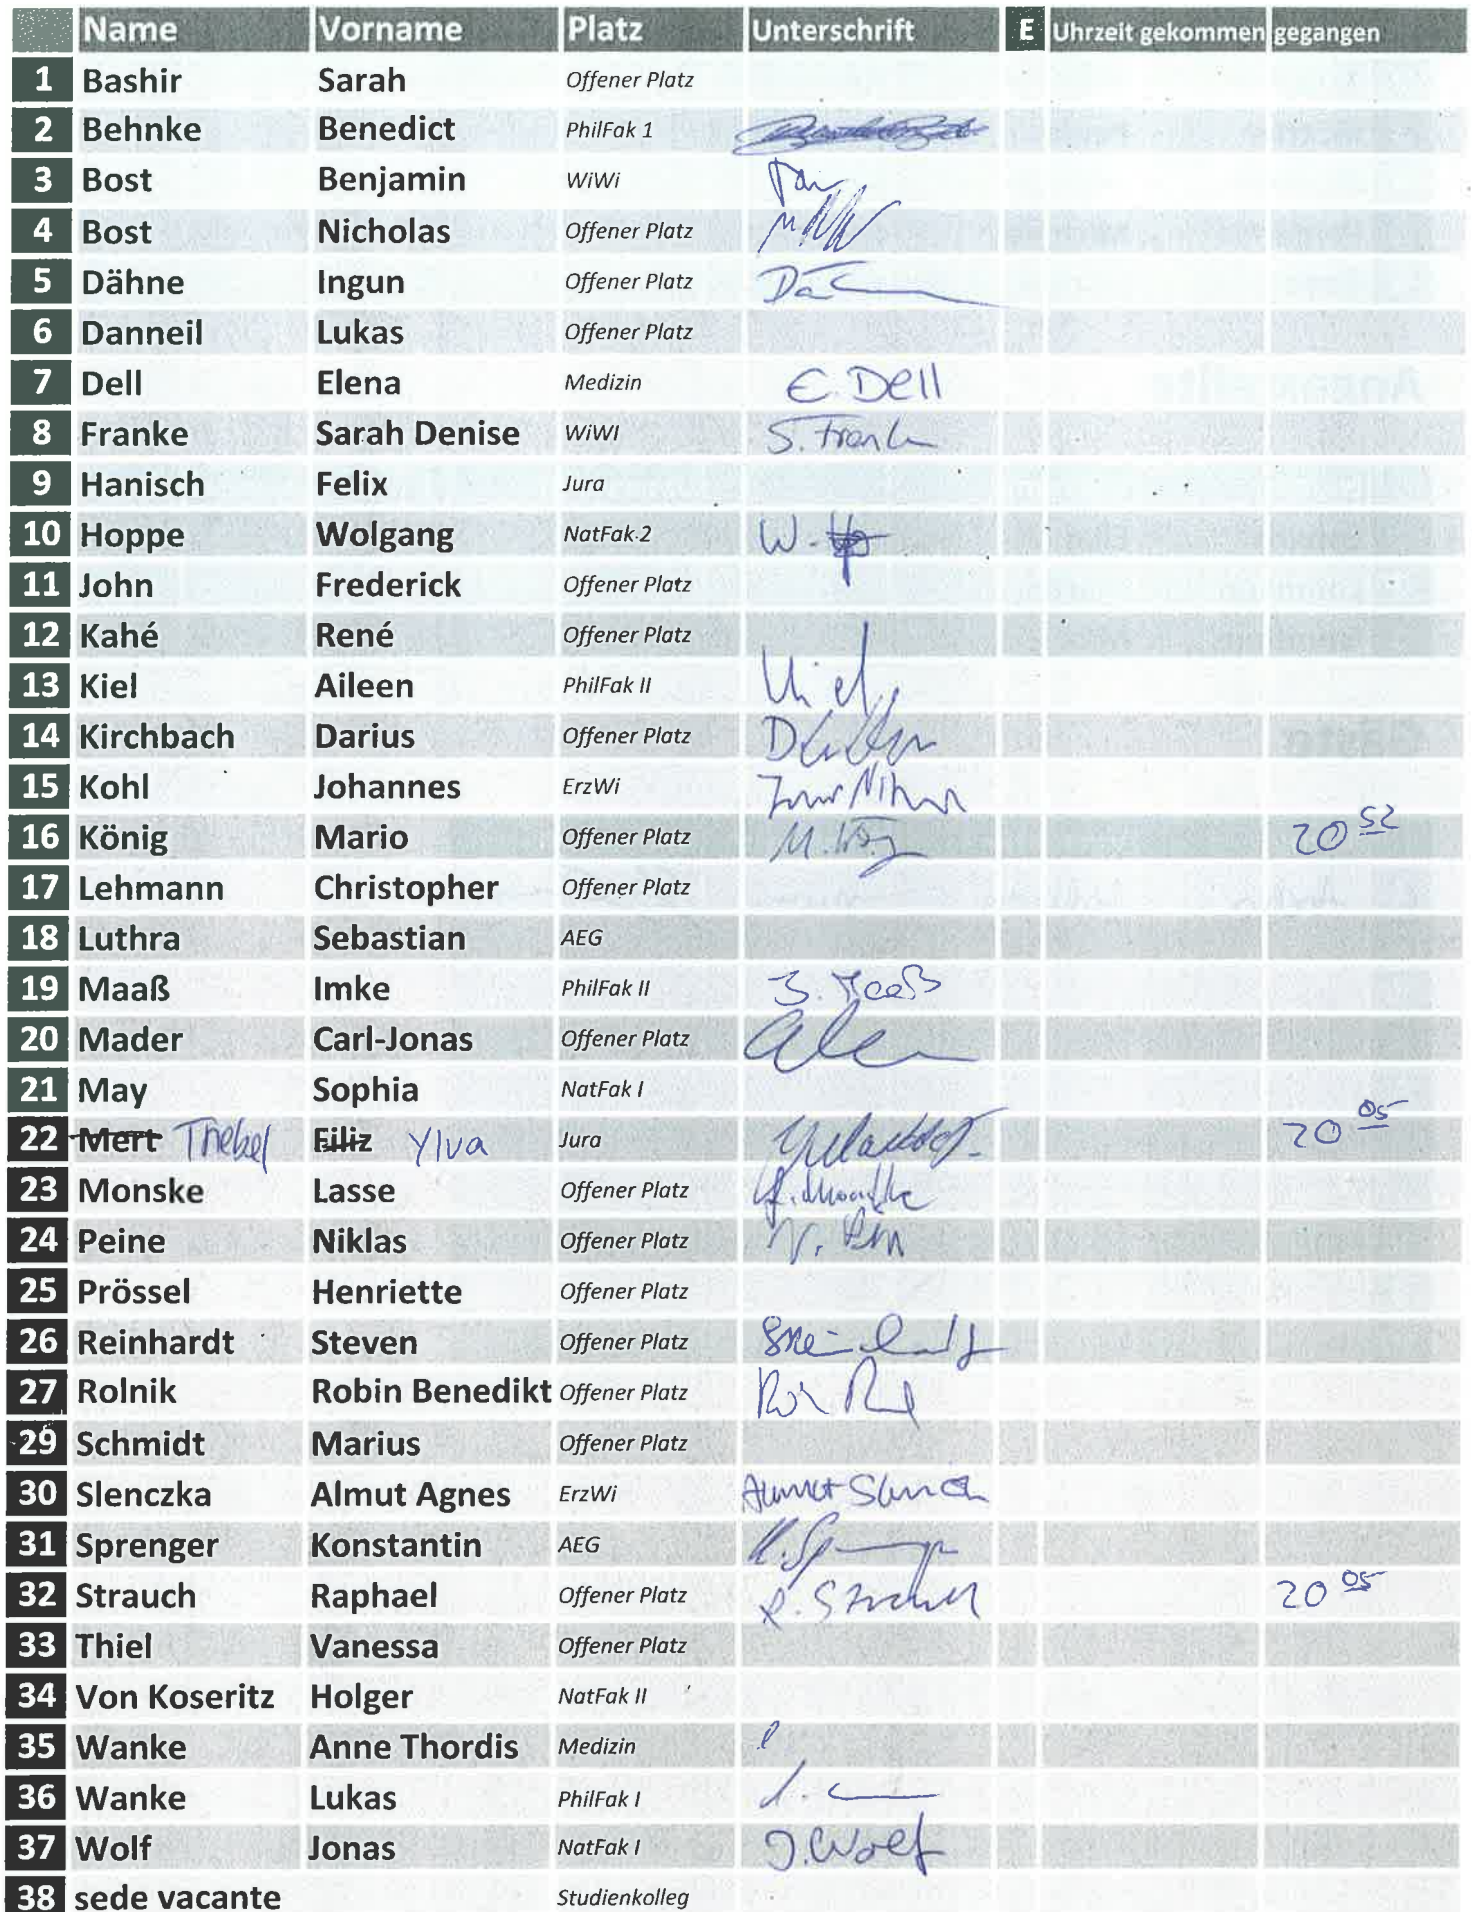 Name Vorname Platz Unterschrift E Uhrzeit gekommen gegangen
1 Bashir Sarah Offener Platz
2 Behnke Benedict PhilFak 1
3 Bost Benjamin WiWi
4 Bost Nicholas Offener Platz
5 Dähne Ingun Offener Platz
6 Danneil Lukas Offener Platz
7 Dell Elena Medizin E. Dell
8 Franke Sarah Denise WiWI
9 Hanisch Felix Jura
10 Hoppe Wolgang NatFak 2
11 John Frederick Offener Platz
12 Kahé René Offener Platz
13 Kiel Aileen PhilFak II Kiel
14 Kirchbach Darius Offener Platz
15 Kohl Johannes ErzWi
16 König Mario Offener Platz 20 52
17 Lehmann Christopher Offener Platz
18 Luthra Sebastian AEG
19 Maaß Imke PhilFak II I. Maaß
20 Mader Carl-Jonas Offener Platz
21 May Sophia NatFak I
22 Mert Thebel Filiz Ylva Jura 20 05
23 Monske Lasse Offener Platz
24 Peine Niklas Offener Platz
25 Prössel Henriette Offener Platz
26 Reinhardt Steven Offener Platz
27 Rolnik Robin Benedikt Offener Platz
29 Schmidt Marius Offener Platz
30 Slenczka Almut Agnes ErzWi
31 Sprenger Konstantin AEG
32 Strauch Raphael Offener Platz R. Strauch 20 05
33 Thiel Vanessa Offener Platz
34 Von Koseritz Holger NatFak II
35 Wanke Anne Thordis Medizin
36 Wanke Lukas PhilFak I
37 Wolf Jonas NatFak I J. Wolf
38 sede vacante Studienkolleg